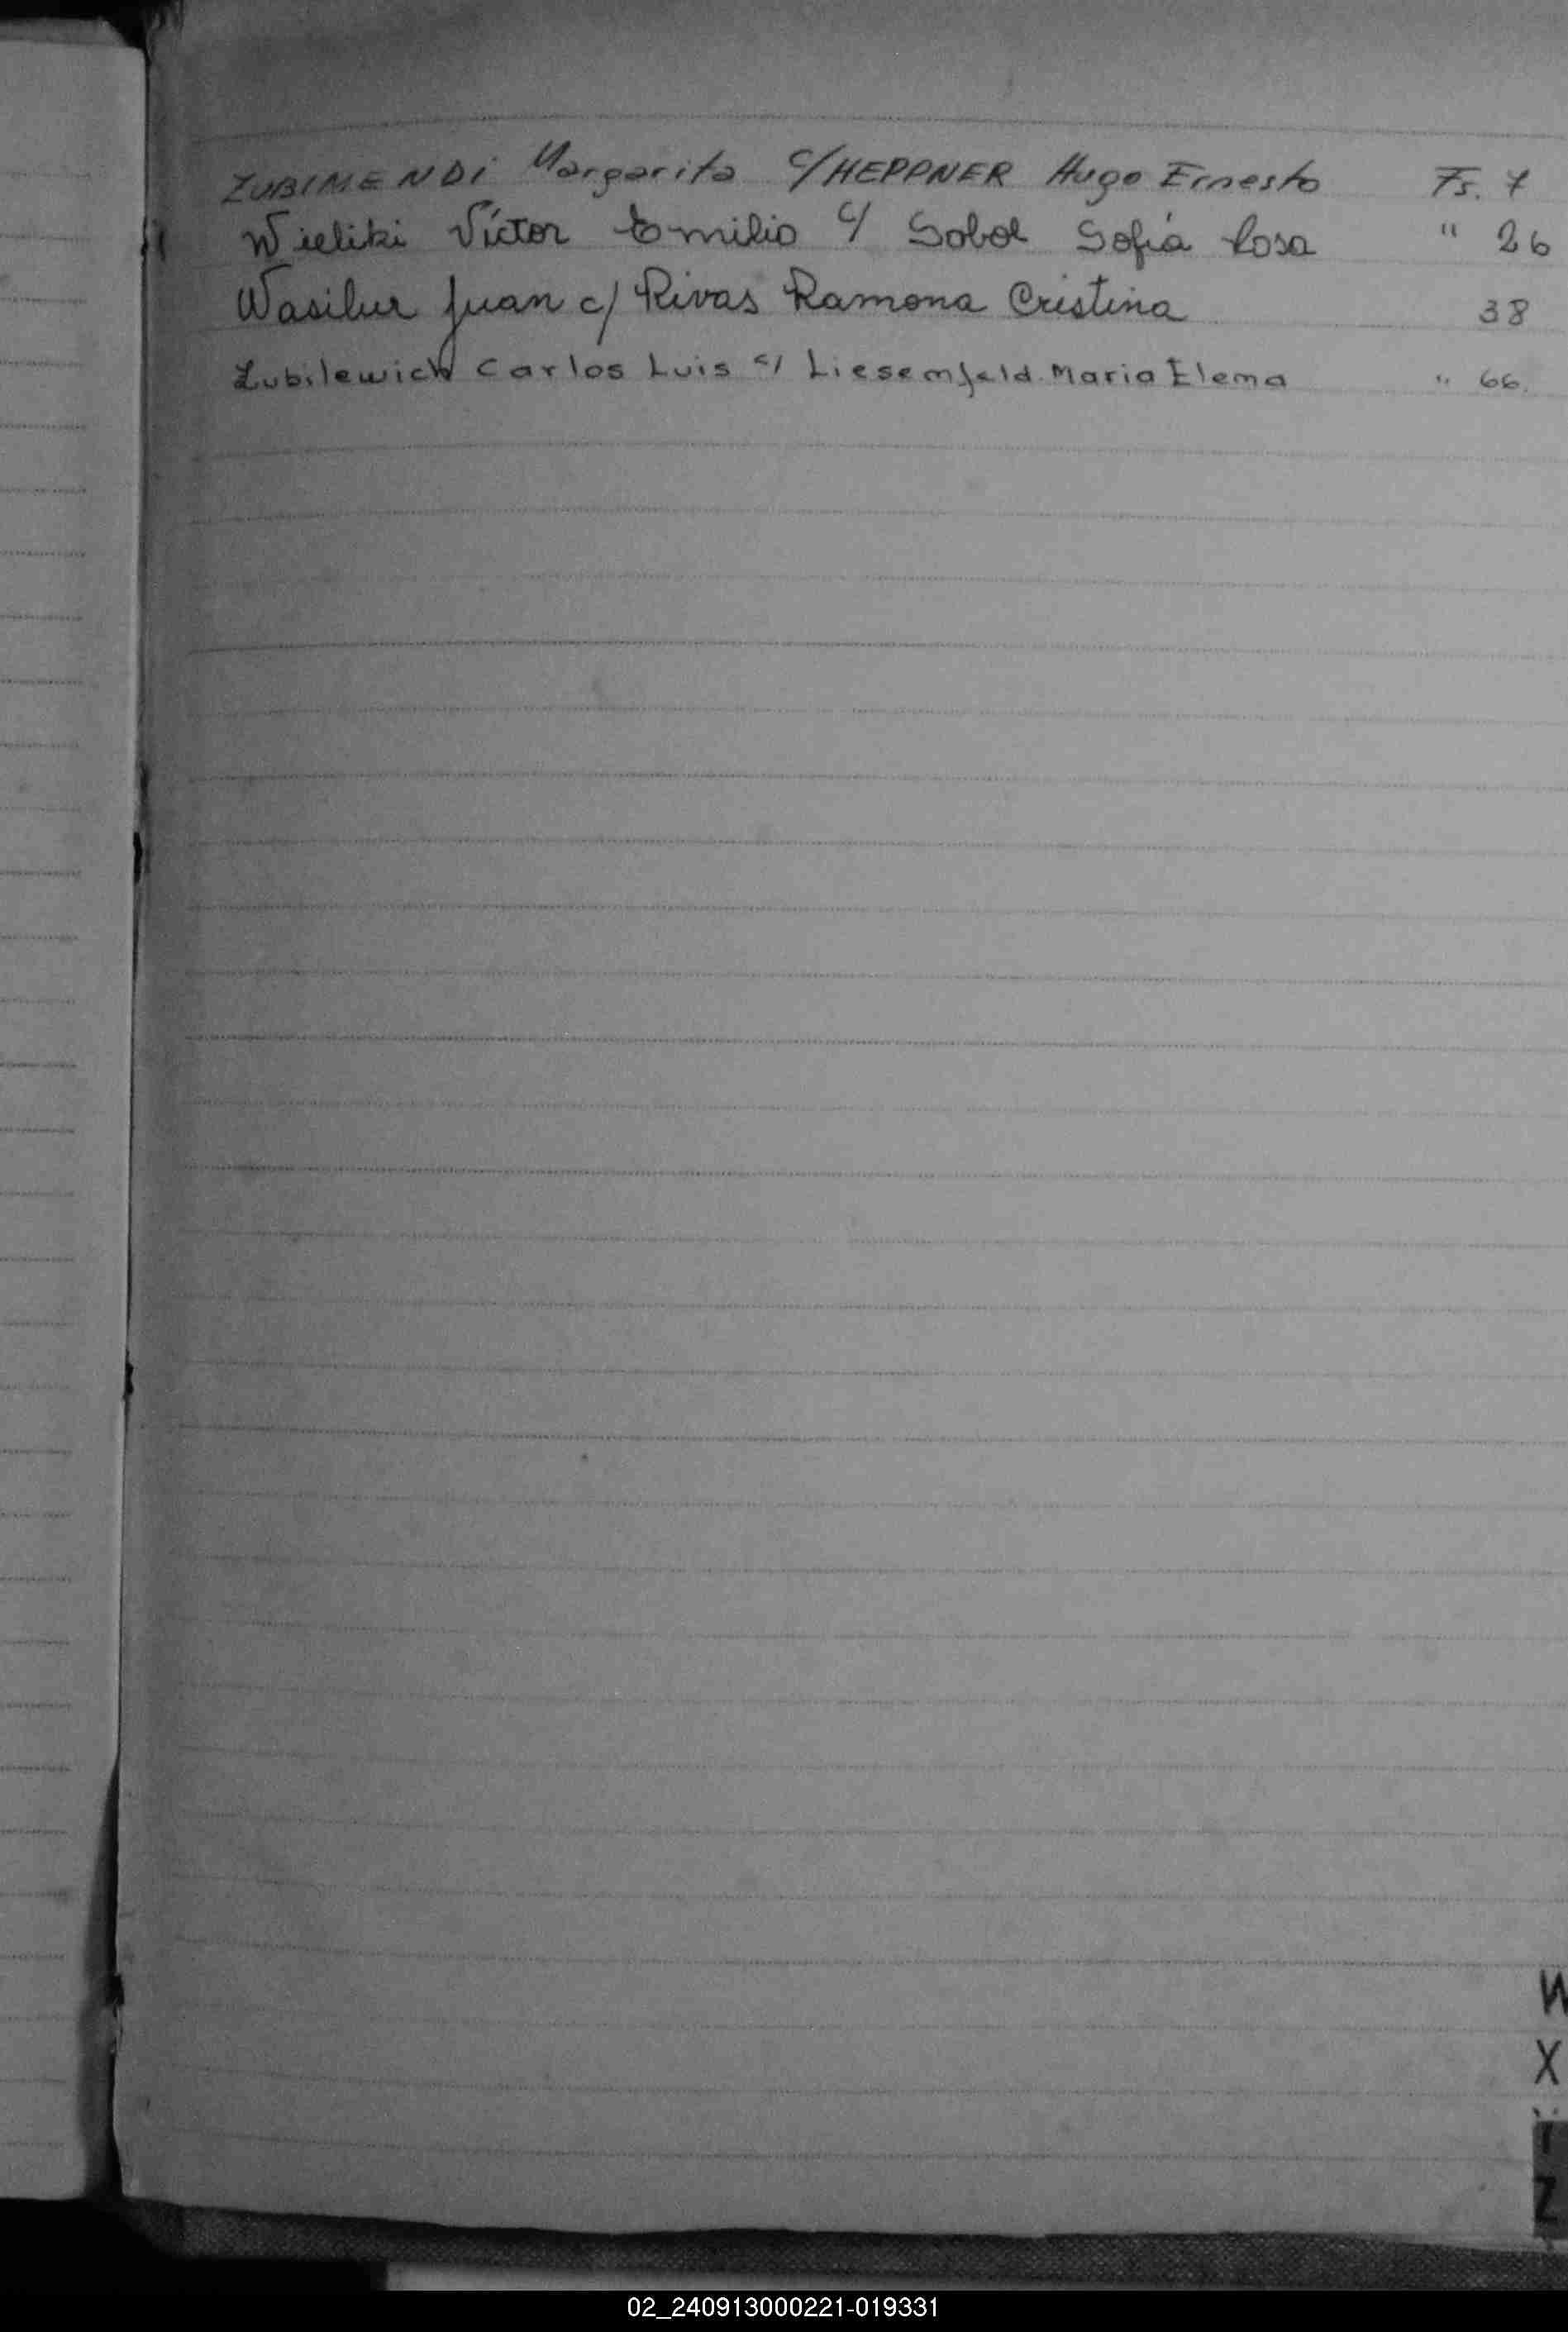 ZUBIMENDI Margarita c/HEPPNER Hugo Ernesto Fs. 7
Wieliki Víctor Emilio c/ Sobol Sofía Rosa " 26
Wasilur Juan c/ Rivas Ramona Cristina 38
Zubilewich Carlos Luis c/ Liesemfeld Maria Elema " 66.
W
X
Y
Z
02_240913000221-019331